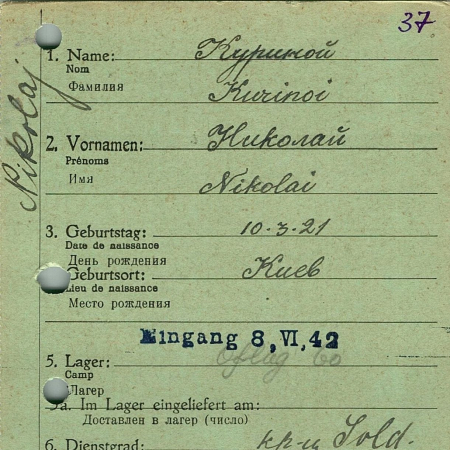 37
Nikolaj
1. Name: Куриной
Nom
Фамилия Kurinoi
2. Vornamen: Николай
Prénoms
Имя Nikolai
3. Geburtstag: 10-3-21
Date de naissance
День рождения
Geburtsort: Киев
Lieu de naissance
Место рождения
Eingang 8, VI, 42
5. Lager: Oflag 60
Camp
Лагерь
5a. Im Lager eingeliefert am:
Доставлен в лагерь (число)
6. Dienstgrad: кр-ц Sold.